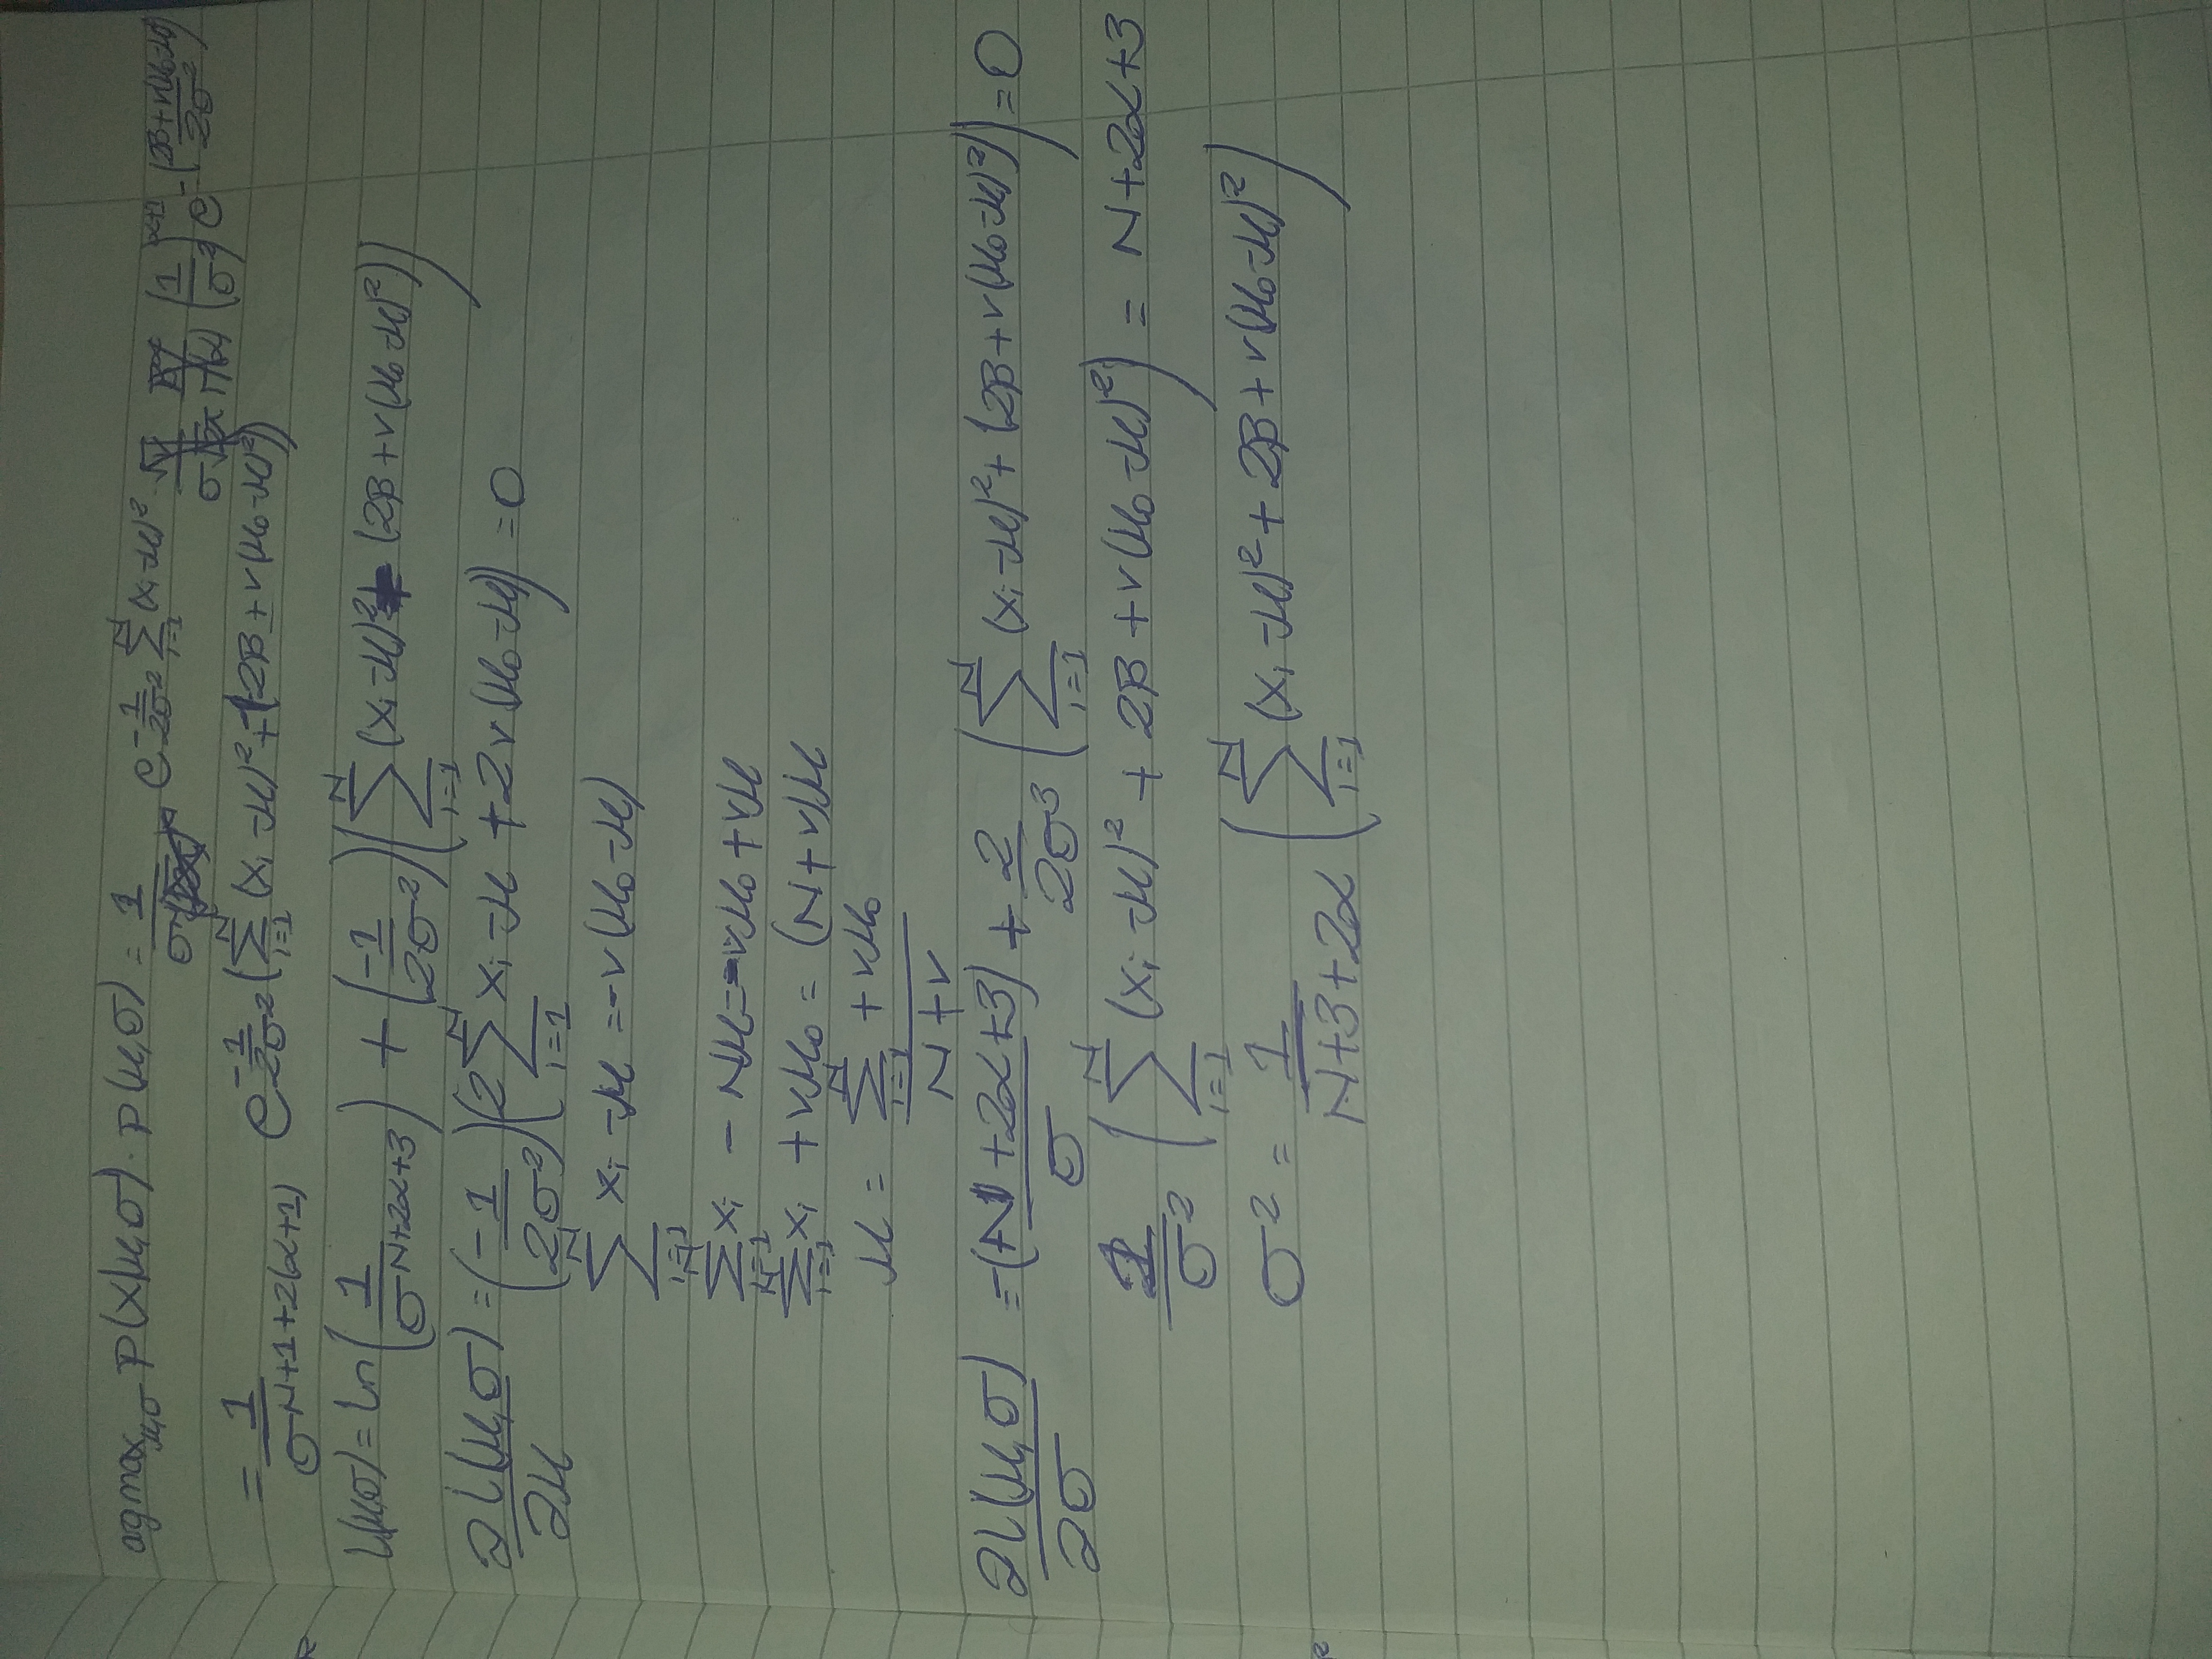 agmax_{μ,σ} p(x|μ,σ) · p(μ,σ) = 1/σ^N e^{-1/2σ² Σ_{i=1}^{N} (x_i-μ)²} · √v/σ√2π β^α/Γ(α) (1/σ²)^{α+1} e^{-(2β+v(μ₀-μ)²)/2σ²}
= 1/σ^{N+1+2(α+1)} e^{-1/2σ² (Σ_{i=1}^{N} (x_i-μ)² + (2β+v(μ₀-μ)²))}
L(μ,σ) = ln(1/σ^{N+2α+3}) + (-1/2σ²)(Σ_{i=1}^{N} (x_i-μ)² + (2β+v(μ₀-μ)²))
∂L(μ,σ)/∂μ = (-1/2σ²)(2Σ_{i=1}^{N} x_i-μ + 2v(μ₀-μ)) = 0
Σ_{i=1}^{N} x_i-μ = -v(μ₀-μ)
Σ_{i=1}^{N} x_i - Nμ = -vμ₀+vμ
Σ_{i=1}^{N} x_i + vμ₀ = (N+v)μ
μ = (Σ_{i=1}^{N} + vμ₀)/(N+v)
∂L(μ,σ)/∂σ = -(N+2α+3)/σ + 2/2σ³ (Σ_{i=1}^{N} (x_i-μ)² + (2β+v(μ₀-μ)²)) = 0
1/σ² (Σ_{i=1}^{N} (x_i-μ)² + 2β+v(μ₀-μ)²) = N+2α+3
σ² = 1/(N+3+2α) (Σ_{i=1}^{N} (x_i-μ)² + 2β+v(μ₀-μ)²)